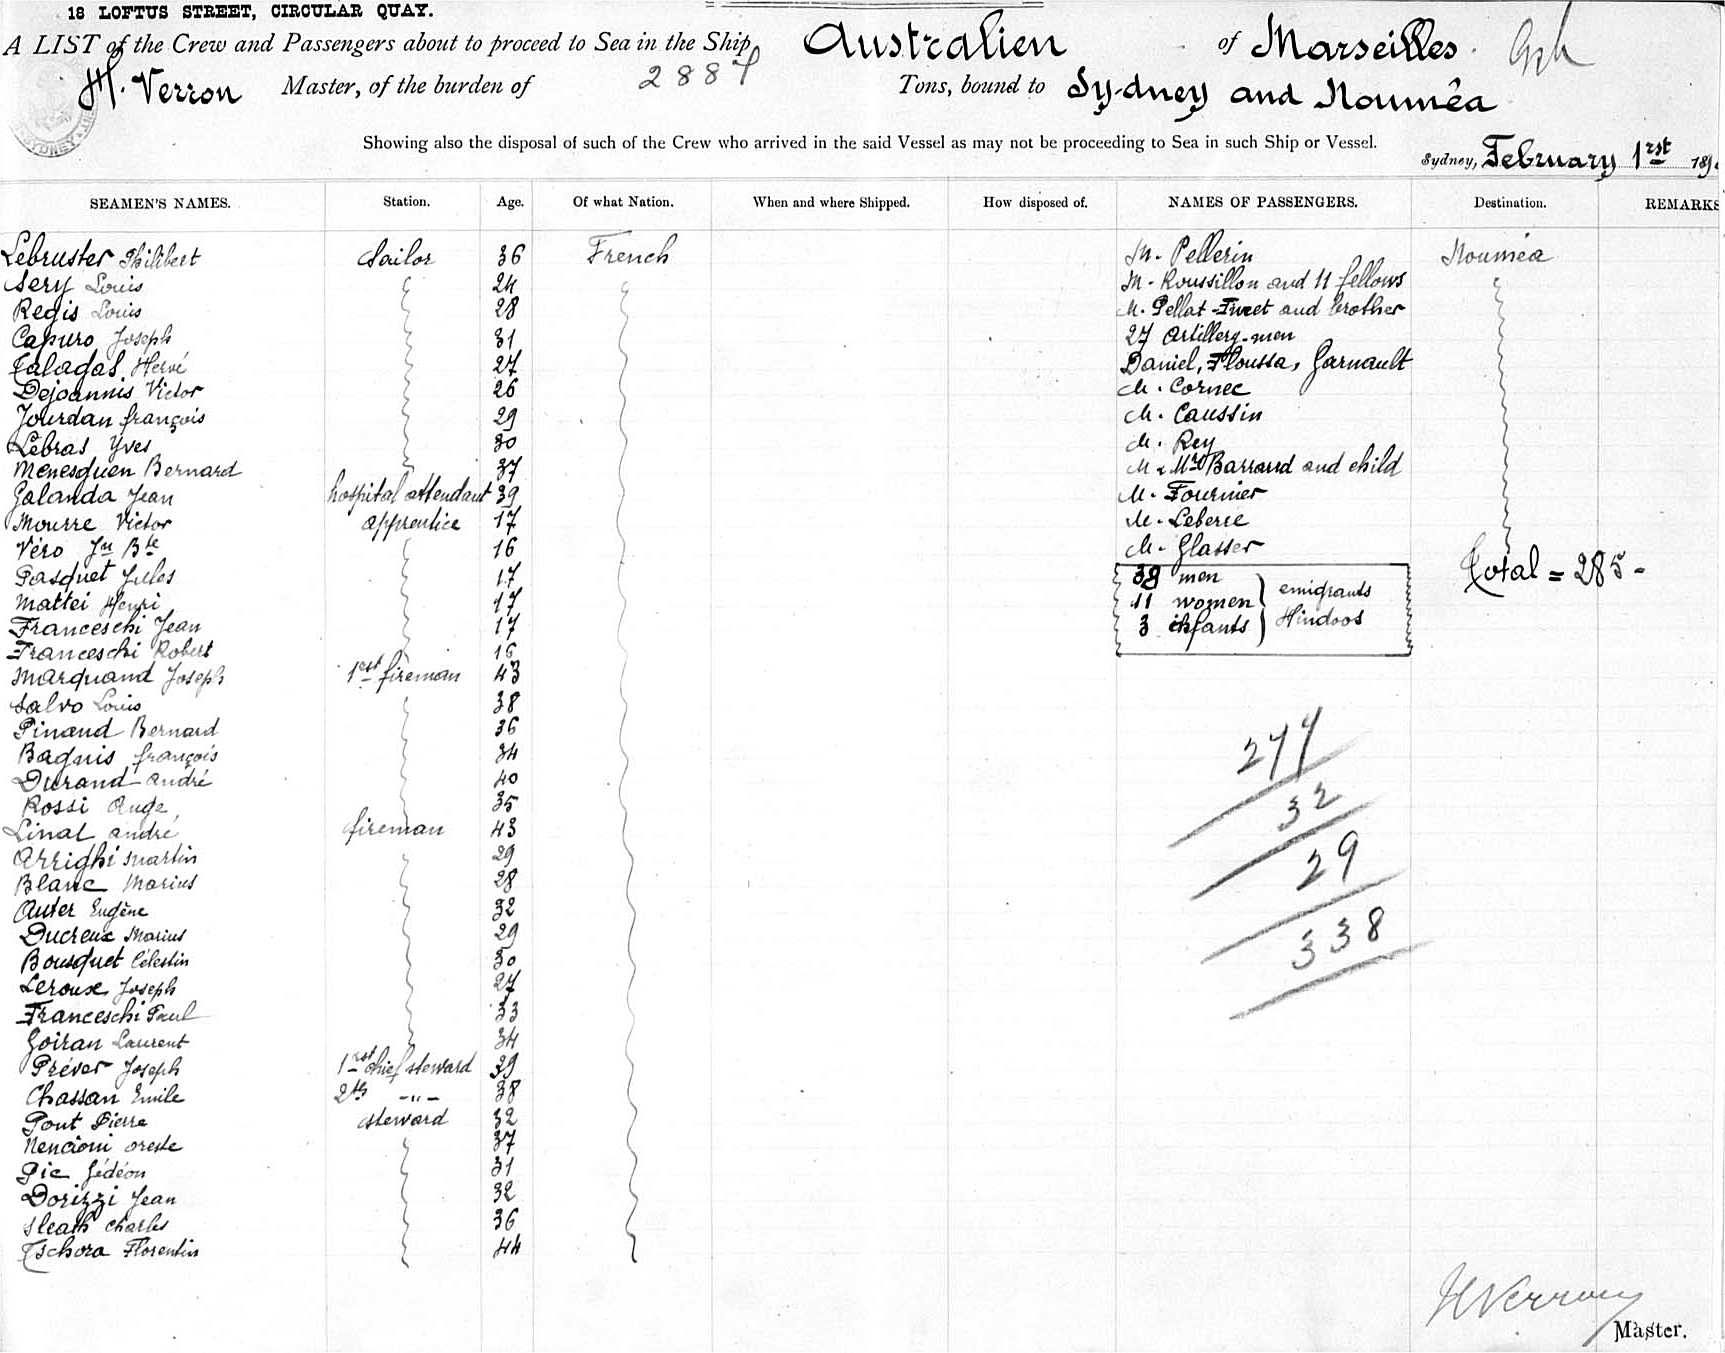 18 LOFTUS STREET, CIRCULAR QUAY.
A LIST of the Crew and Passengers about to proceed to Sea in the Ship Australien of Marseilles.
H. Verron Master, of the burden of 2887 Tons, bound to Sydney and Nouméa
Showing also the disposal of such of the Crew who arrived in the said Vessel as may not be proceeding to Sea in such Ship or Vessel.
Sydney, February 1rst 189
SEAMEN'S NAMES. Station. Age. Of what Nation. When and where Shipped. How disposed of. NAMES OF PASSENGERS. Destination. REMARKS
Lebruster Philibert Sailor 36 French M. Pellerin Nouméa
Sery Louis 24 M. Roussillon and 11 fellows
Regis Louis 28 M. Pellat-Finet and brother
Capuro Joseph 31 27 Artillery-men
Talagas Hervé 27 Daniel, Floussa, Garnault
Dejoannis Victor 26 M. Cornec
Jourdan françois 29 M. Caussin
Lebras Yves 30 M. Rey
Menesguen Bernard 37 M & Mrs Barraud and child
Galanda Jean hospital attendant 39 M. Fournier
Mourre Victor apprentice 17 M. Leberre
Véro Jn Bte 16 M. Glasser
Pasquet Jules 17 38 men
Mattei Henri 17 11 women emigrants
Franceschi Jean 17 3 infants Hindoos
Total = 285 -
Franceschi Robert 16
Marquand Joseph 1rst fireman 43
Salvo Louis 38
Pinaud Bernard 36
Bagnis françois 34
Durand André 40
Rossi Ange 35
Linal andré fireman 43
Arrighi Martin 29
Blanc Marius 28
Auter Eugène 32
Ducreux Marius 29
Bousquet Célestin 30
Leroux Joseph 27
Franceschi Paul 33
Goiran Laurent 34
Préver Joseph 1rst chief steward 39
Chassan Emile 2th -"- 38
Pont Pierre steward 32
Nencioni oreste 37
Pic Gédéon 31
Dorizzi Jean 32
Sleath Charles 36
Tschora Florentin 44
277
32
29
338
H Verron
Master.